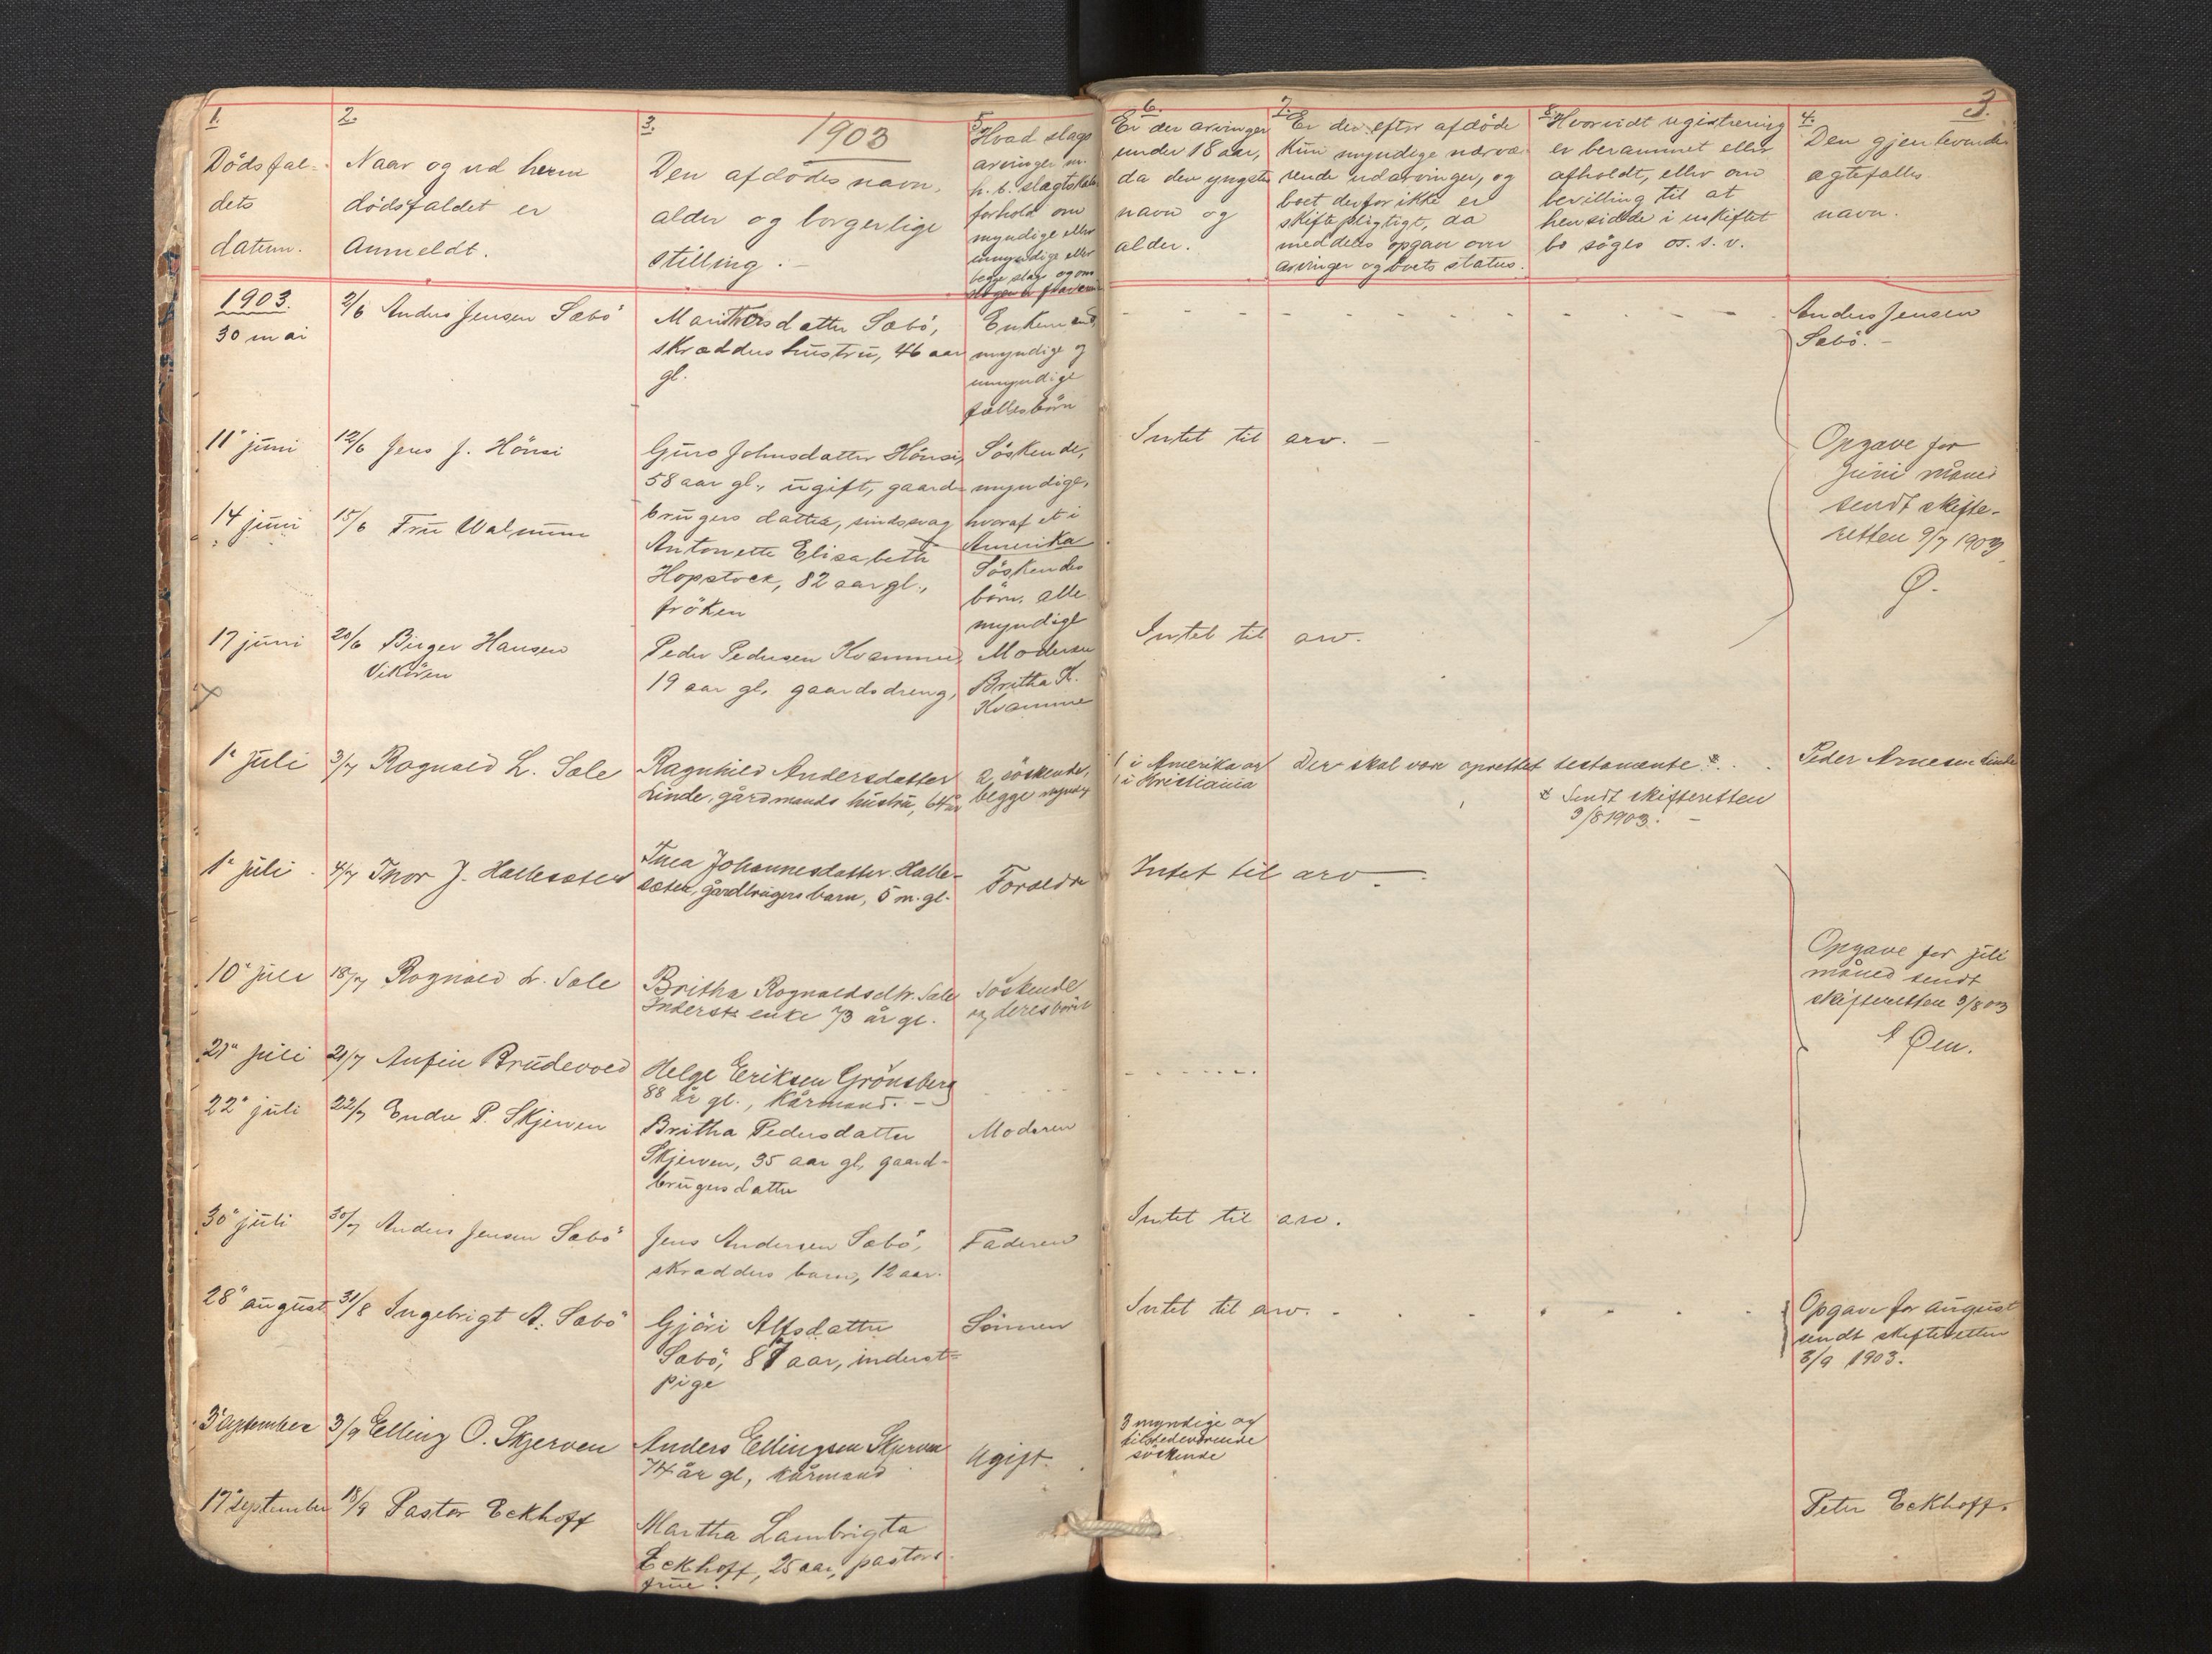 1.
Dödsfal-
dets
datum.
2.
Naar og ud hvem
dödsfaldet er
Anmeldt.
3.
1903
Den afdödes navn,
alder og borgerlige
stilling.
5.
Hvad slags
arvinger m.
h. t. slagtskabs
forhold om
myndige eller
umyndige eller
begge slags og om
6.
Er der arvinger
under 18 aar,
da den yngstes
navn og
alder.
7.
Er der efter afdöde
kun myndige nærvæ-
rende udarvinger, og
boet derfor ikke er
skiftepligtigt, da
meddeles opgave over
arvinger og boets status.
8.
Hvorvidt registrering
er berammet eller
afholdt, eller om
bevilling til at
hensidde i uskiftet
bo söges o. s. v.
3.
4.
Den gjenlevende
ægtefælles
navn.
1903.
30 mai
2/6 Anders Jensen Sæbö
Marit Torsdatter Sæbö,
skrædders hustru, 46 aar
gl.
Enkemand,
myndige og
umyndige
fællesbörn
Anders Jensen
Sæbö. -
11 juni
12/6 Jens J. Hönsi
Guro Johnsdatter Hönsi,
58 aar gl., ugift, gaard-
brugers datter, sindssvag
Söskende,
myndige,
hvoraf et i
Amerika
Intet til arv. -
Opgave for
Juni måned
sendt skifte-
retten 9/7 1903
Ø.
14 juni
15/6 Fru Walnum
Antonette Elisabeth
Hopstock, 82 aar gl.,
fröken
Söskendes
börn, alle
myndige
17 juni
20/6 Birger Hansen
Vikören
Peder Pedersen Kvamme,
19 aar gl. gaardsdreng,
Moderen
Britha K.
Kvamme
Intet til arv.
1 juli
3/7 Rognald L. Sæle
Ragnhild Andersdatter
Linde, gårdmands hustru, 64 år
2 söskende,
begge mynd.
1 i Amerika og
1 i Kristiania
Der skal være oprettet testamente
Sendt skifteretten
3/8 1903. -
Peder Arnesen Linde
1 juli
4/7 Thor J. Hallesæter
Thea Johannesdatter Halle-
sæter, gårdbrugers barn, 5 m. gl.
Forældre
Intet til arv -
10 juli
18/7 Rognald L. Sæle
Britha Rognaldsdtr. Sæle
Inderst enke 73 år gl.
Söskende
og deres börn
Opgave for juli
måned sendt
skifteretten 3/8 03
Øen.
21 juli
21/7 Anfin Brudevold
Helge Eriksen Grönsberg
88 år gl., kårmand. -
22 juli
22/7 Endre P. Skjerven
Britha Pedersdatter
Skjerven, 35 aar gl, gaard-
brugersdatter
Moderen
30 juli
30/7 Anders Jensen Sæbö
Jens Andersen Sæbö,
skrædders barn, 12 aar.
Faderen
Intet til arv.
28 august
31/8 Ingebrigt A. Sæbö
Gjöri Alfsdatter
Sæbö, 87 aar, inderst-
pige
Sönnen
Intet til arv.
Opgave for august
sendt skifteretten
3/9 1903.
3 september
3/9 Elling O. Skjerven
Anders Ellingsen Skjerven
74 år gl, kårmand
Ugift.
3 myndige og
tilstedeværende
söskende
17 september
18/9 Pastor Eckhoff
Martha Lambrigta
Eckhoff, 25 aar, pastors
frue.
Peter Eckhoff.